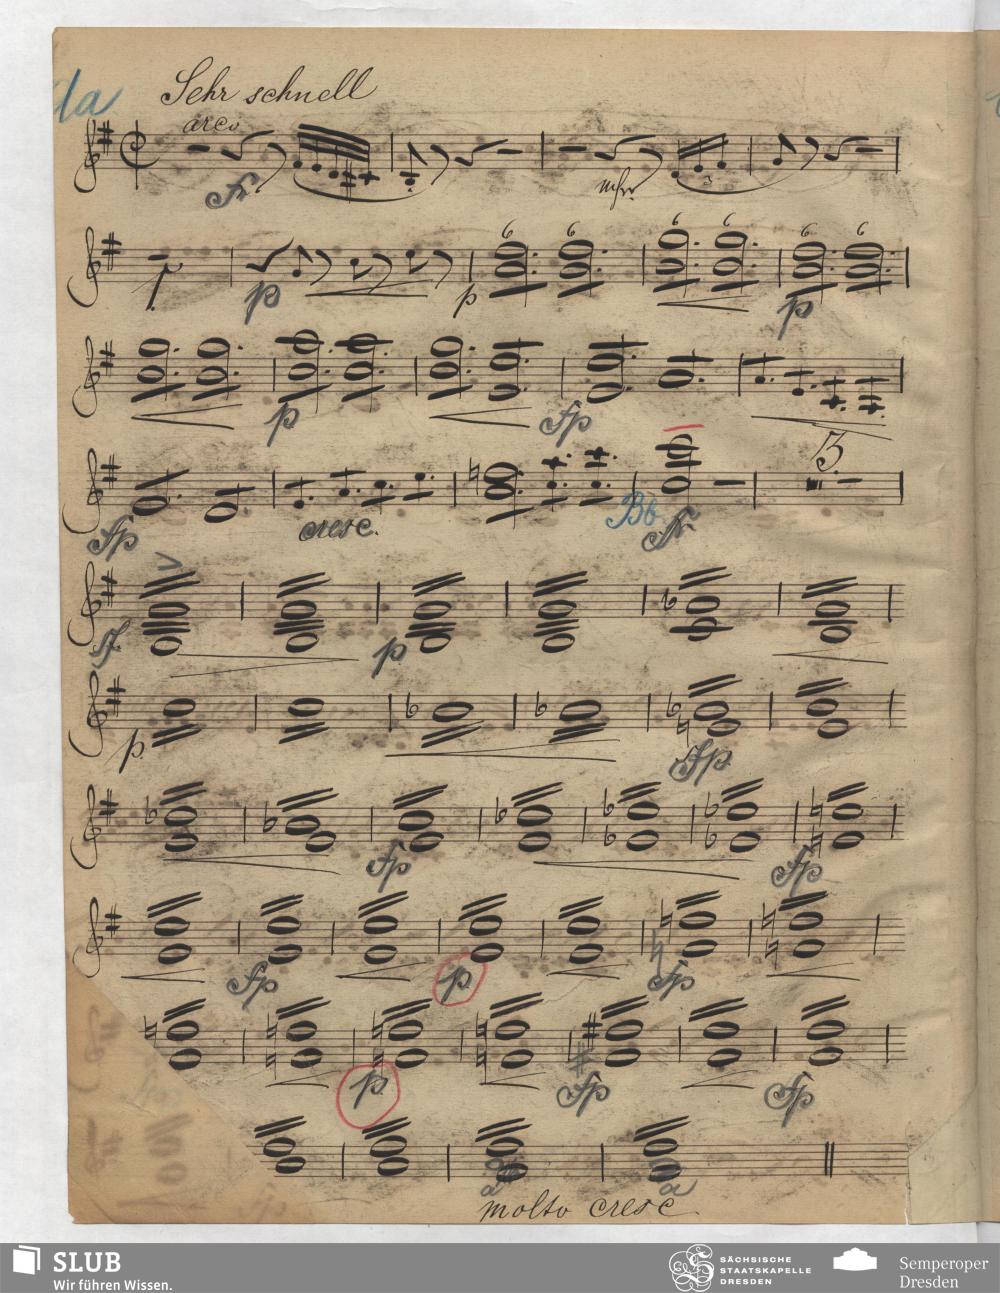 Sehr schnell
arco
3
p
p
p
6 6
6 6
6 6
p
p
fp
13
fp
cresc.
Bb
sf
p
p
fp
fp
fp
fp
p
fp
p
fp
fp
molto cresc.
SLUB
Wir führen Wissen.
SÄCHSISCHE
STAATSKAPELLE
DRESDEN
Semperoper
Dresden